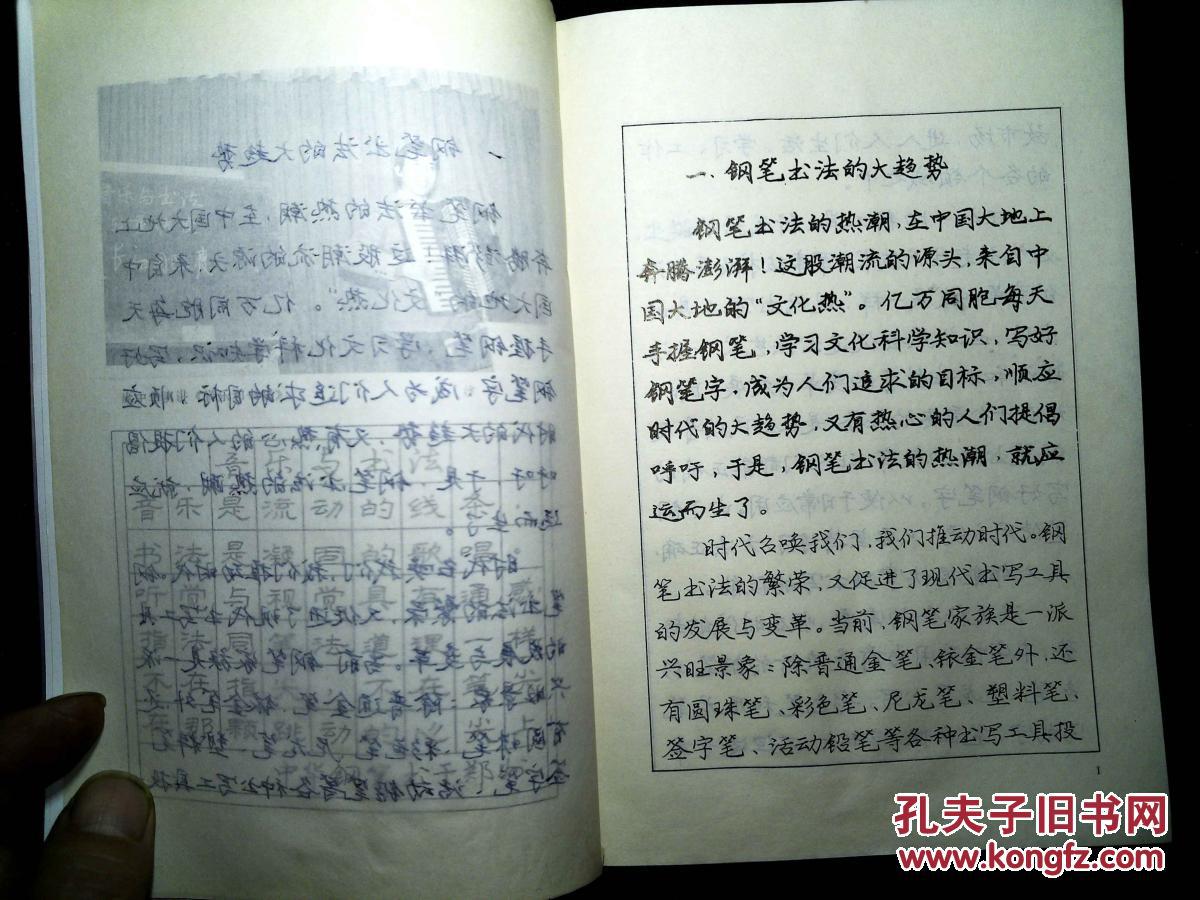 一、钢笔书法的大趋势
钢笔书法的热潮,在中国大地上
奔腾澎湃!这股潮流的源头,来自中
国大地的“文化热”。亿万同胞每天
手握钢笔,学习文化科学知识,写好
钢笔字,成为人们追求的目标,顺应
时代的大趋势,又有热心的人们提倡
呼吁,于是,钢笔书法的热潮,就应
运而生了。
时代召唤我们,我们推动时代。钢
笔书法的繁荣,又促进了现代书写工具
的发展与变革。当前,钢笔家族是一派
兴旺景象:除普通金笔、铱金笔外,还
有圆珠笔、彩色笔、尼龙笔、塑料笔、
签字笔、活动铅笔等各种书写工具投
1
音乐与书法
音乐是流动的线条,
书法是凝固的歌唱。
听觉与视觉具有通感,
指法同笔法道理一样
孔夫子旧书网
www.kongfz.com